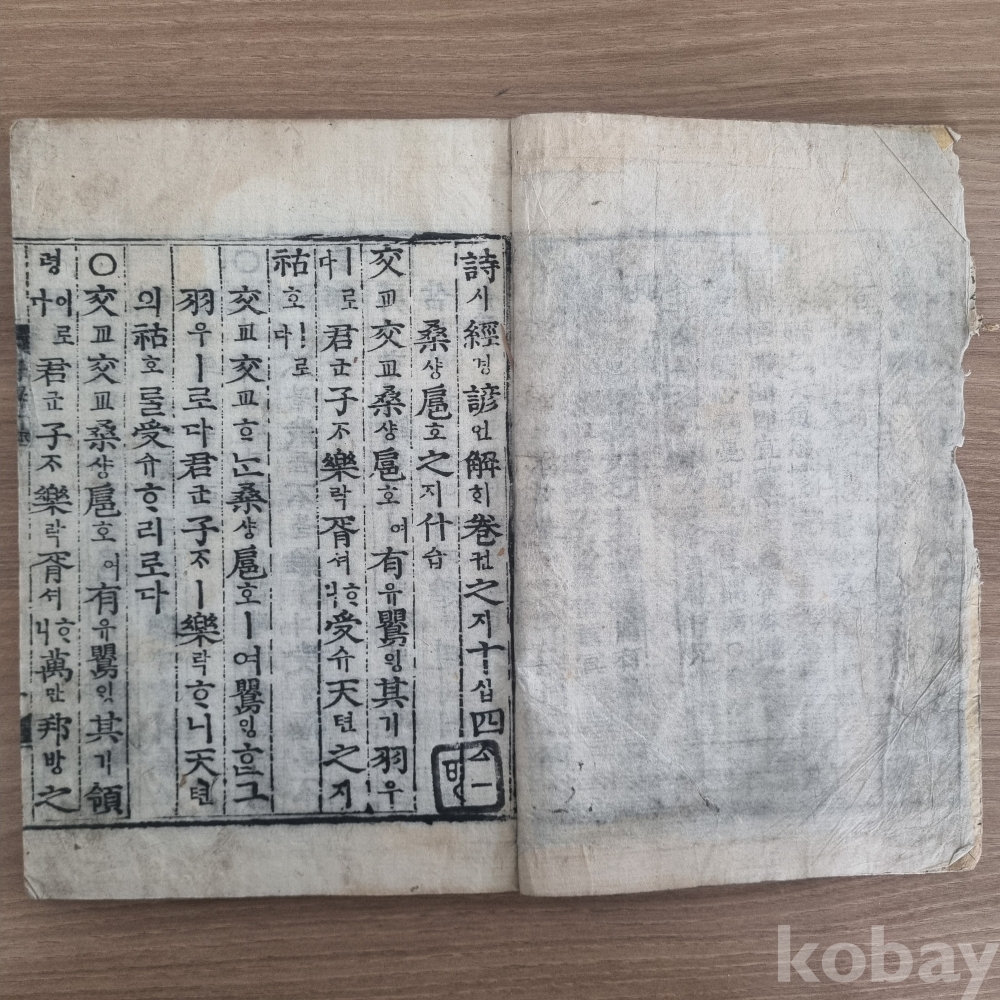 詩시經경諺언解ᄒᆡ卷권之지十십四ᄉᆞ
桑샹扈호之지什습
交교交교桑샹扈호여有유鸎ᄋᆡᆼ其기羽우
ㅣ로다君군子ᄌᆞ樂락胥셔ᄒᆞ니受슈天텬之지
祜호ㅣ로다
○交교交교ᄒᆞᄂᆞᆫ桑샹扈호ㅣ여鸎ᄋᆡᆼᄒᆞᆫ그
羽우ㅣ로다君군子ᄌᆞㅣ樂락ᄒᆞ니天텬
의祜호를受슈ᄒᆞ리로다
○交교交교桑샹扈호여有유鸎ᄋᆡᆼ其기領
령이로다君군子ᄌᆞ樂락胥셔ᄒᆞ니萬만邦방之
kobay